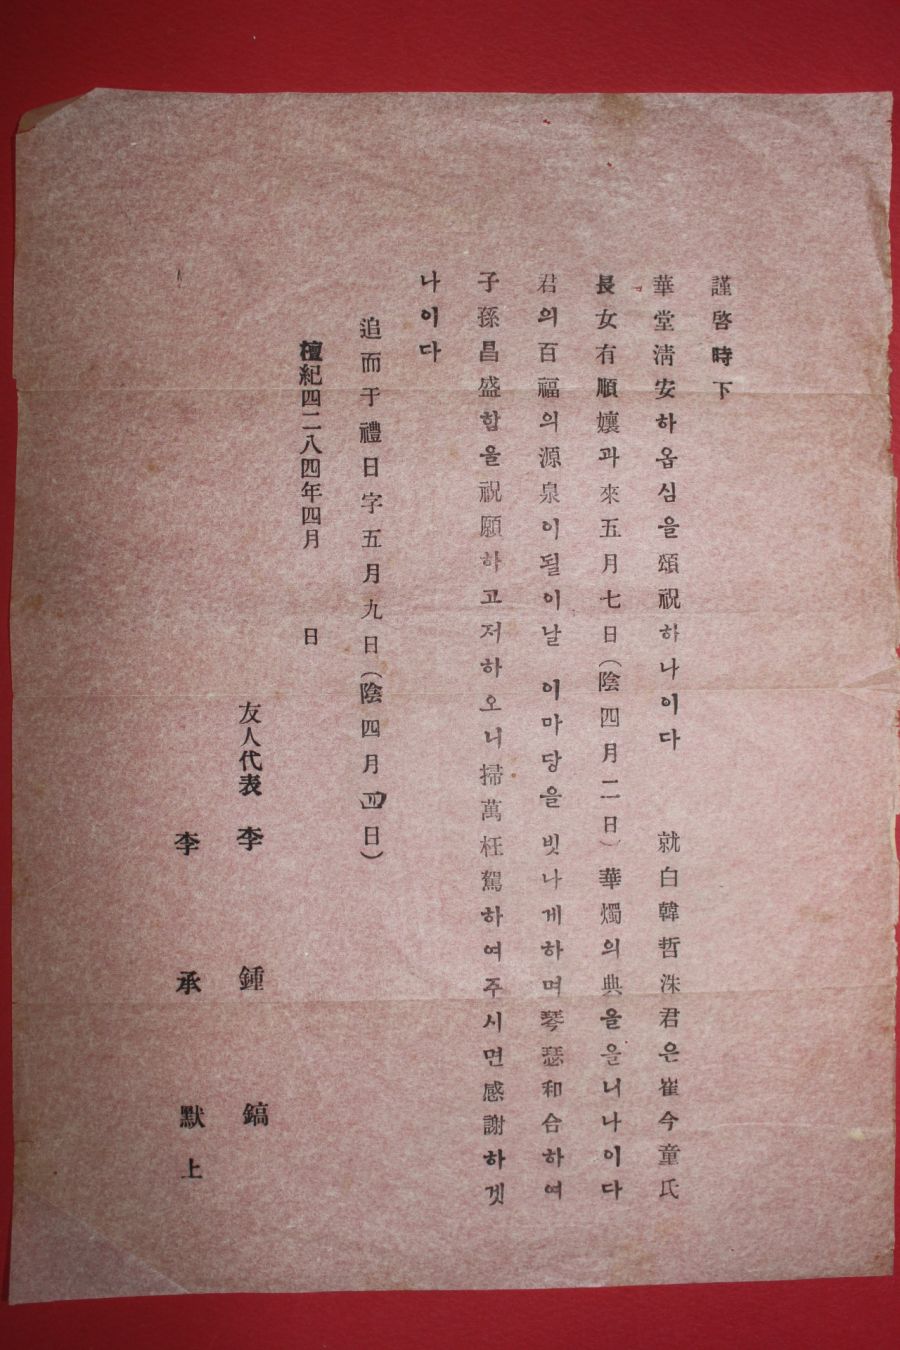 謹啓時下
華堂淸安하옵심을頌祝하나이다 就白韓哲洙君은崔今童氏
長女有順孃과來五月七日(陰四月二日)華燭의典을을니나이다
君의百福의源泉이될이날 이마당을 빗나게하며琴瑟和合하여
子孫昌盛함을祝願하고저하오니掃萬枉駕하여주시면感謝하겟
나이다
追而于禮日字五月九日(陰四月四日)
檀紀四二八四年四月 日
友人代表 李鍾鎬
李承默上